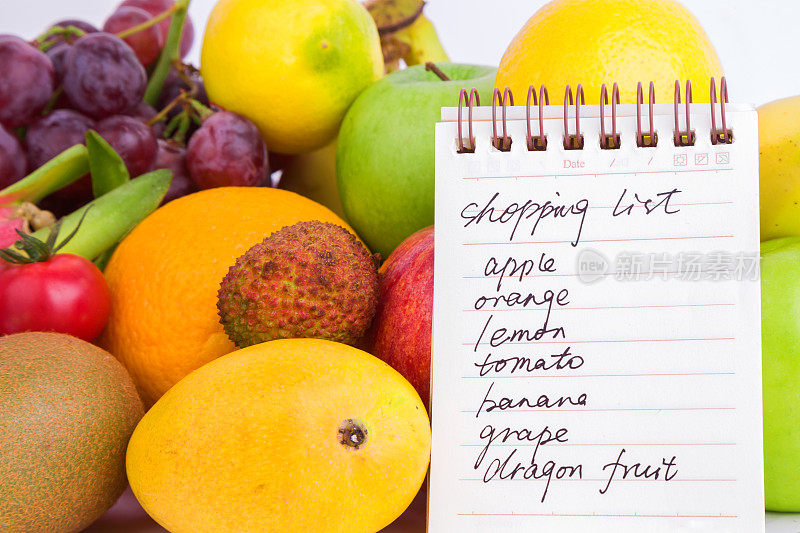 Date / /
shopping list
apple
orange
lemon
tomato
banana
grape
dragon fruit
new 新版视觉中国